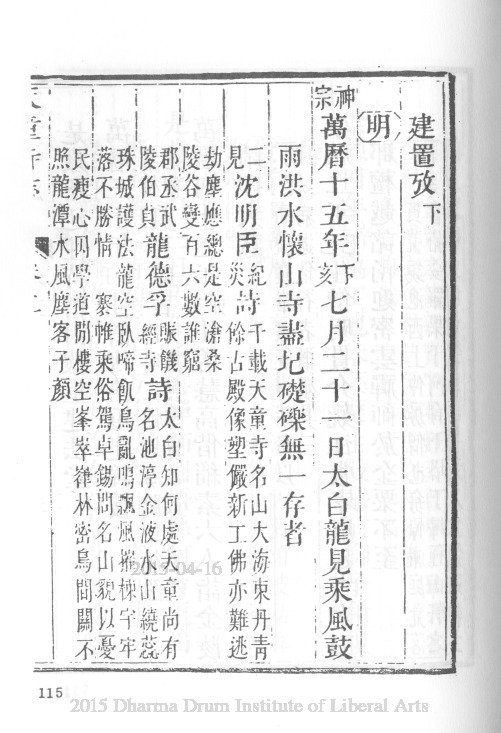 建置攷下
明
神宗萬曆十五年丁亥七月二十一日太白龍見乘風鼓
雨洪水懷山寺盡圮礎礫無一存者
二見沈明臣紀災詩千載天童寺名山大海東丹青
餘古殿像塑儼新工佛亦難逃
劫塵應總是空滄桑
陵谷變百六數誰窮
郡丞武陵伯貞龍德孚賑饑經寺詩太白知何處天童尚有
名池渟金液水山繞蕊
珠城護法龍空臥啼飢鳥亂鳴飄風摧棟宇牢
落不勝情 褰帷乘俗駕卓錫問名山貌以憂
民瘦心因學道閒樓空峯崒嵂林密鳥間關不
照龍潭水風塵客子顏
115
2015-04-16
2015 Dharma Drum Institute of Liberal Arts